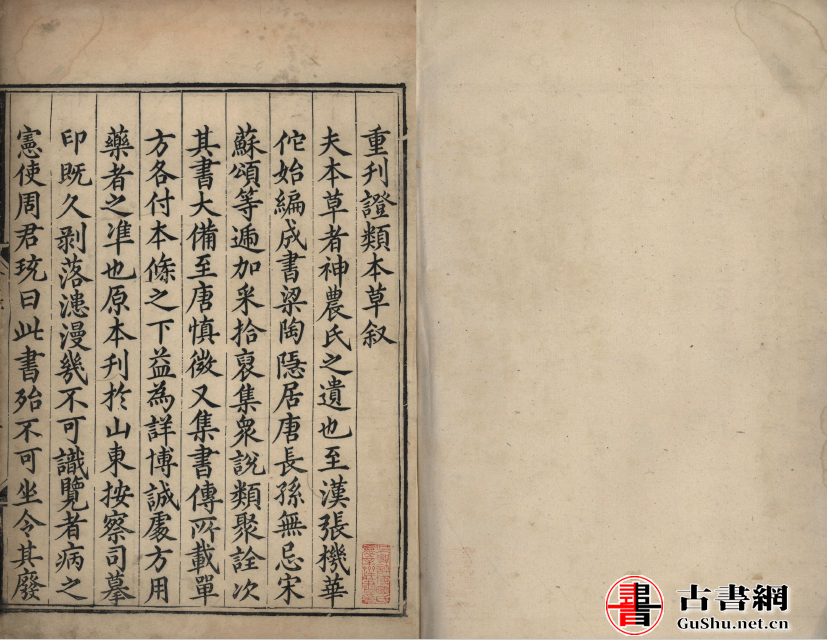 重刊證類本草叙
夫本草者神農氏之遺也至漢張機華
佗始編成書梁陶隱居唐長孫無忌宋
蘇頌等遞加采拾裒集衆說類聚詮次
其書大備至唐慎微又集書傳所載單
方各付本條之下益為詳博誠處方用
藥者之準也原本刊於山東按察司摹
印既久剥落漶漫幾不可識覽者病之
憲使周君珫曰此書殆不可坐令其廢
古書網
GuShu.net.cn